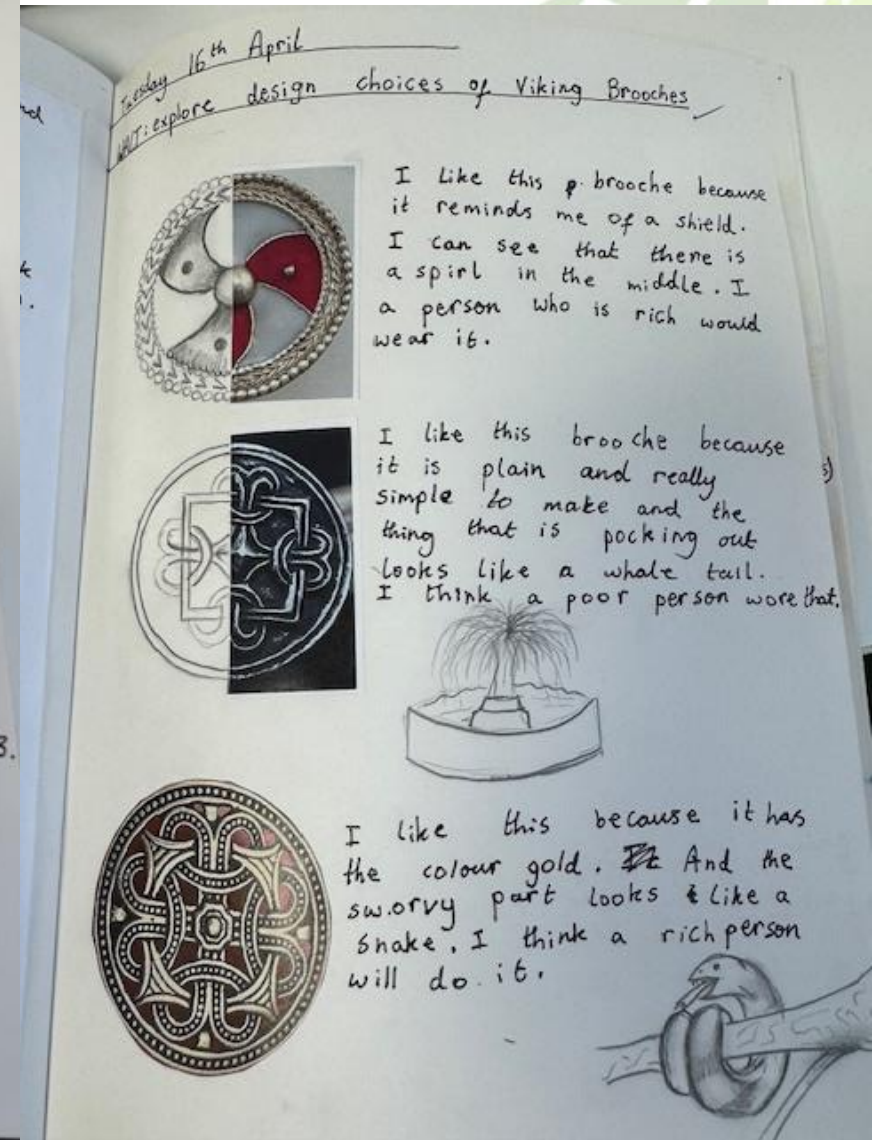 Tuesday 16th April
WALT: explore design choices of Viking Brooches
I Like this p. brooche because
it reminds me of a shield.
I can see that there is
a spirl in the middle. I
a person who is rich would
wear it.
I like this brooche because
it is plain and really
simple to make and the
thing that is pocking out
looks like a whale tail.
I think a poor person wore that.
I like this because it has
the colour gold. And the
sworvy part looks like a
snake. I think a rich person
will do it.